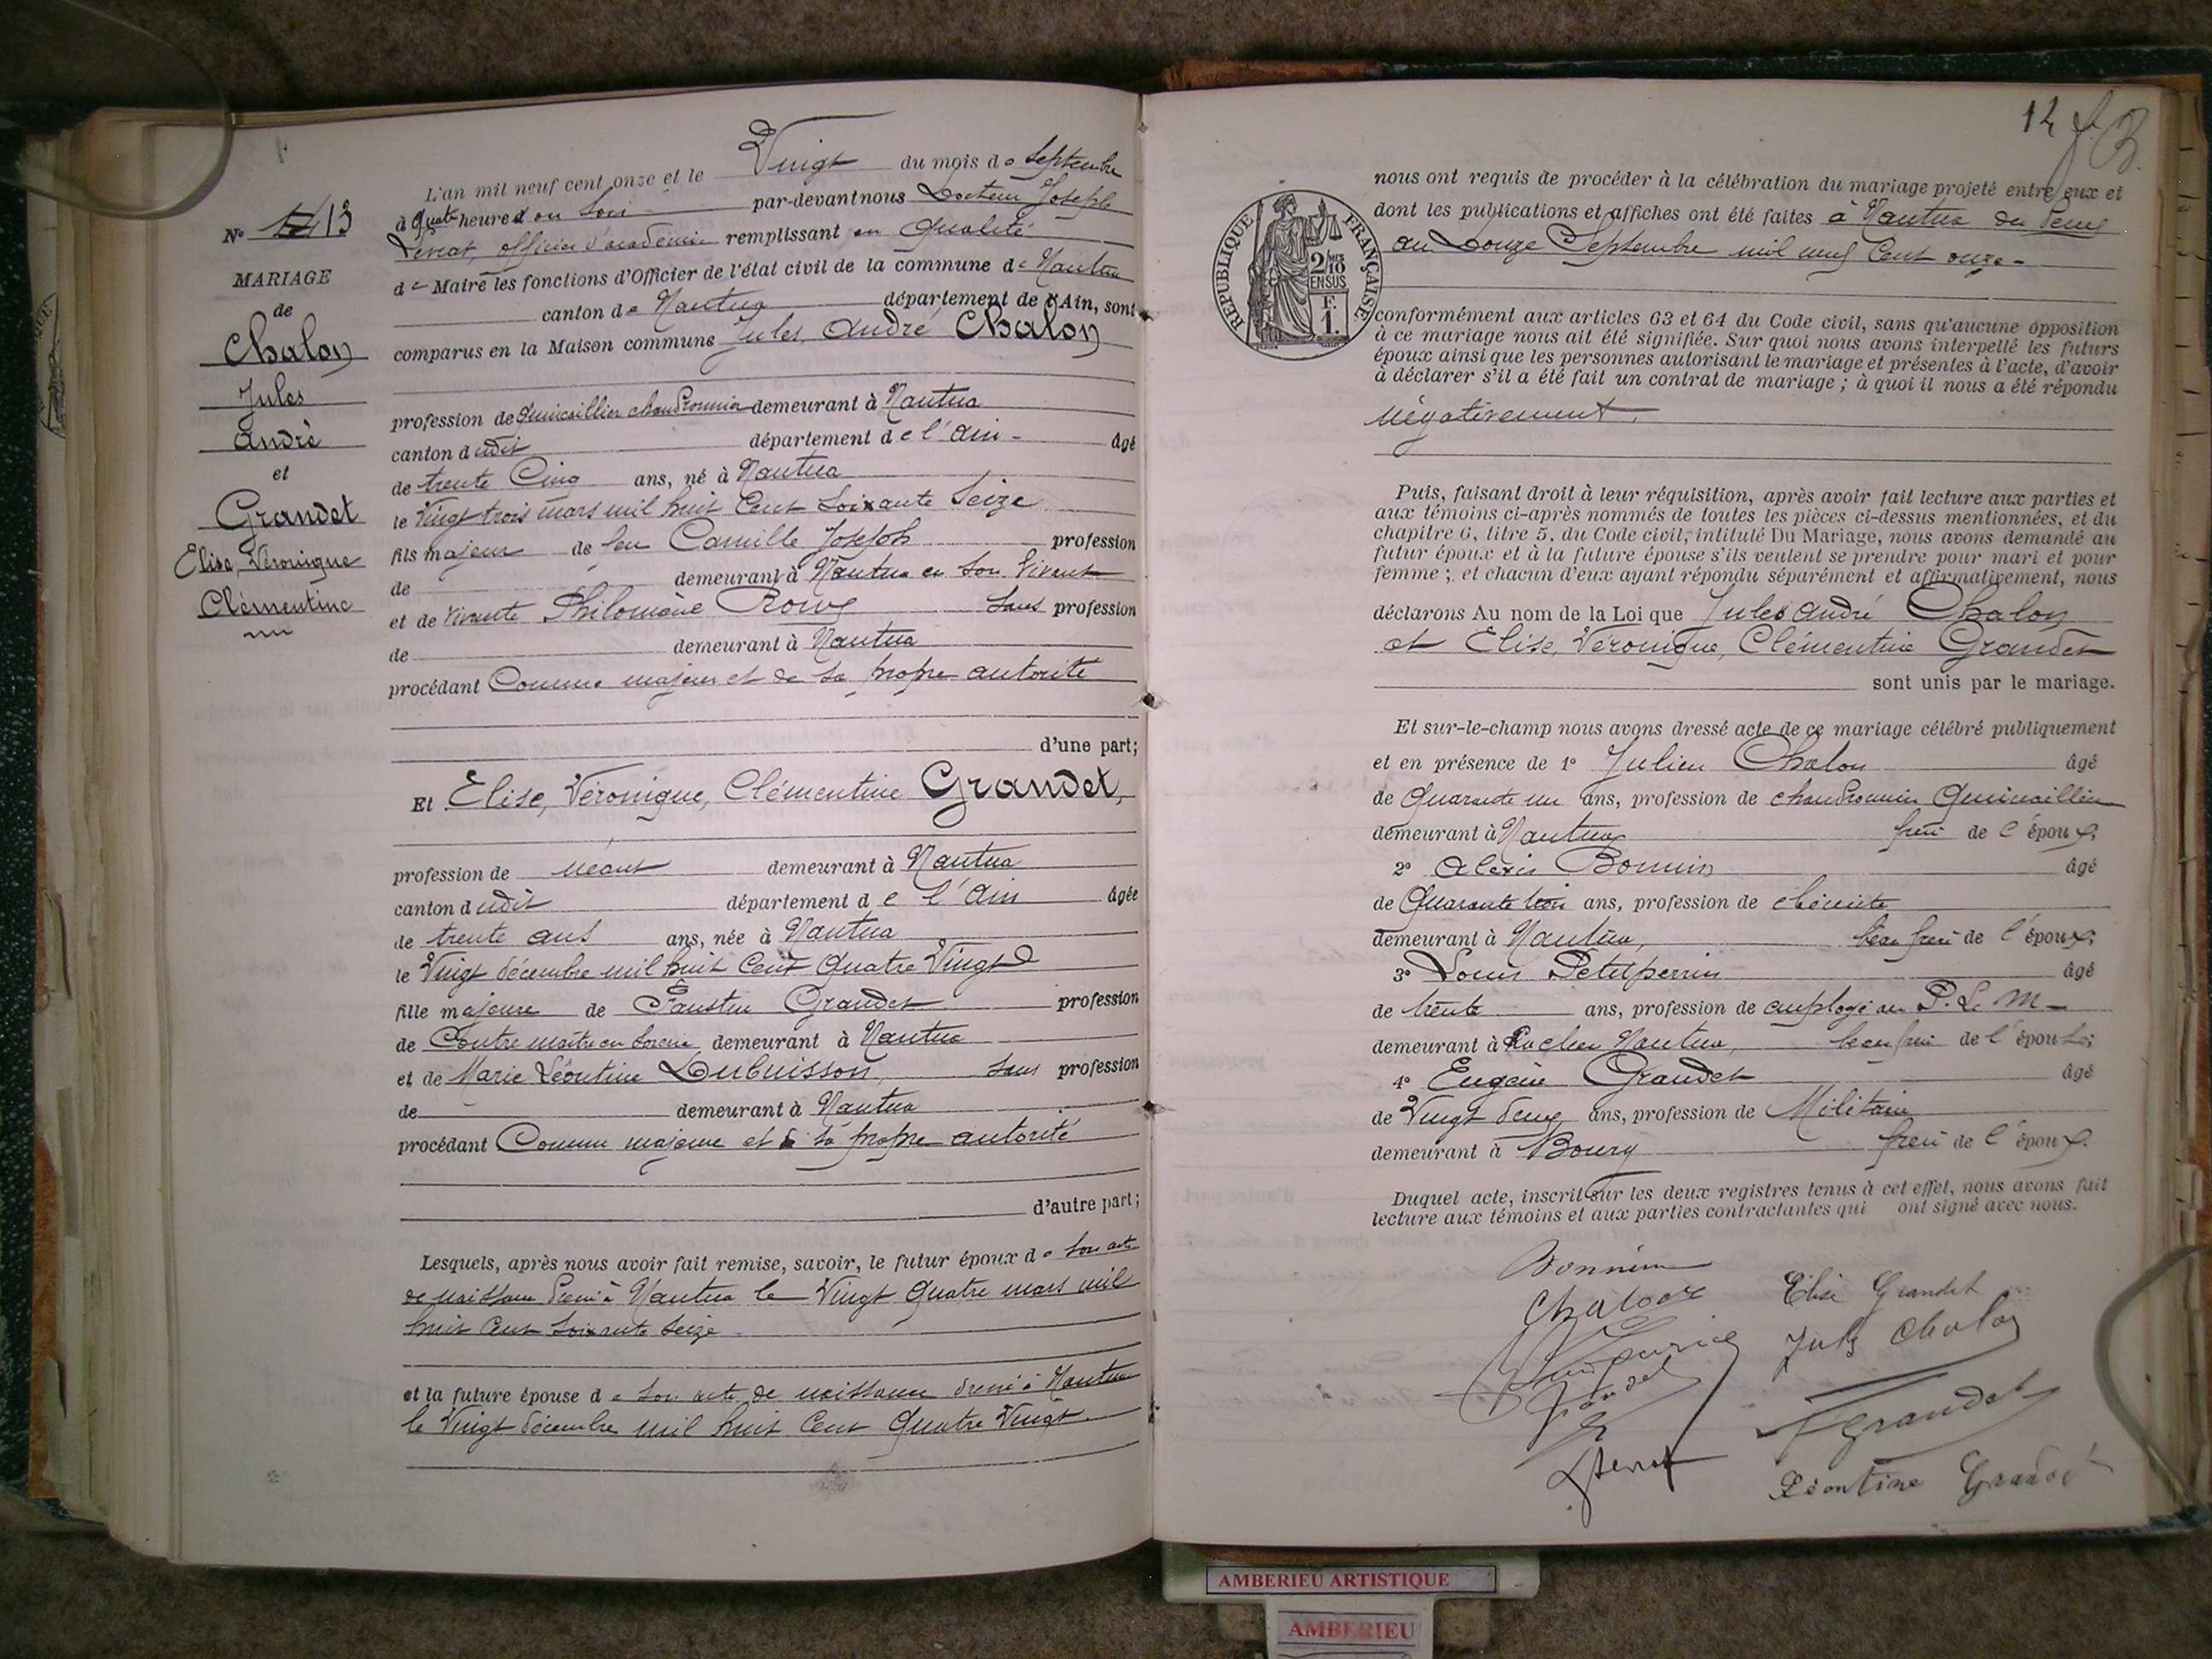 L'an mil neuf cent onze et le Vingt du mois de Septembre
à quatre heures du soir par-devant nous Docteur Joseph
officier d'académie remplissant en qualité
de Maire les fonctions d'Officier de l'état civil de la commune de Nantua
canton de Nantua département de l'Ain, sont
comparus en la Maison commune Jules, André Chalon
profession de quincaillier chaudronnier demeurant à Nantua
canton dudit département de l'Ain - âgé
de trente Cinq ans, né à Nantua
le Vingt trois mars mil huit Cent Soixante Seize
fils majeur de feu Camille Joseph profession
de demeurant à Nantua en son Vivant
et de vivante Philomène sans profession
de demeurant à Nantua
procédant Comme majeur et de sa propre autorité
d'une part;
Et Elise, Véronique, Clémentine Grandet,
profession de néant demeurant à Nantua
canton dudit département de l'Ain âgée
de trente ans ans, née à Nantua
le Vingt décembre mil huit Cent Quatre Vingt
fille majeure de Faustin Grandet profession
de Contre maître en demeurant à Nantua
et de Marie Léontine Dubuisson, sans profession
de demeurant à Nantua
procédant Comme majeure et de sa propre autorité
d'autre part;
Lesquels, après nous avoir fait remise, savoir, le futur époux de son acte
de naissance dressé à Nantua le Vingt Quatre mars mil
huit Cent Soixante Seize
et la future épouse de son acte de naissance dressé à Nantua
le Vingt décembre mil huit Cent Quatre Vingt
N° 13
MARIAGE
de
Chalon
Jules
André
et
Grandet
Elise, Véronique
Clémentine
14
nous ont requis de procéder à la célébration du mariage projeté entre eux et
dont les publications et affiches ont été faites à Nantua du deux
au Douze Septembre mil neuf Cent onze -
conformément aux articles 63 et 64 du Code civil, sans qu'aucune opposition
à ce mariage nous ait été signifiée. Sur quoi nous avons interpellé les futurs
époux ainsi que les personnes autorisant le mariage et présentes à l'acte, d'avoir
à déclarer s'il a été fait un contrat de mariage ; à quoi il nous a été répondu
négativement.
RÉPUBLIQUE FRANÇAISE
2/10 MES
EN SUS
F.
1.
Puis, faisant droit à leur réquisition, après avoir fait lecture aux parties et
aux témoins ci-après nommés de toutes les pièces ci-dessus mentionnées, et du
chapitre 6, titre 5, du Code civil, intitulé Du Mariage, nous avons demandé au
futur époux et à la future épouse s'ils veulent se prendre pour mari et pour
femme ; et chacun d'eux ayant répondu séparément et affirmativement, nous
déclarons Au nom de la Loi que Jules André Chalon
et Elise, Véronique, Clémentine Grandet
sont unis par le mariage.
Et sur-le-champ nous avons dressé acte de ce mariage célébré publiquement
et en présence de 1° Julien Chalon âgé
de Quarante un ans, profession de chaudronnier Quincaillier
demeurant à Nantua frère de l'époux;
2° Alexis Bonnin âgé
de Quarante trois ans, profession de ébéniste
demeurant à Nantua, beau frère de l'époux;
3° Louis Petitperrin âgé
de trente ans, profession de employé au P. L. M -
demeurant à Nantua, beau frère de l'épouse;
4° Eugène Grandet âgé
de Vingt deux ans, profession de Militaire
demeurant à Bourg frère de l'époux.
Duquel acte, inscrit sur les deux registres tenus à cet effet, nous avons fait
lecture aux témoins et aux parties contractantes qui ont signé avec nous.
Bonnin
Chalon
Elise Grandet
Jules Chalon
Grandet
F Grandet
Léontine Grandet
AMBERIEU ARTISTIQUE
AMBERIEU